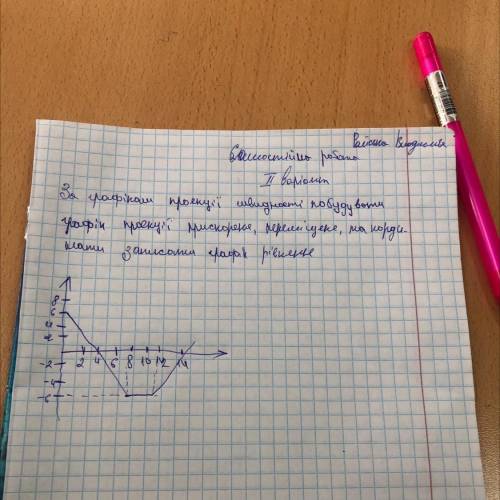 Самостійна робота
II варіант
За графікам проекції швидкості побудувати
графік проекції прискореня, переміщене, та корди
нати записати графік рівнене
8
6
4
2
2 4 6 8 10 12 14
-2
-4
-6